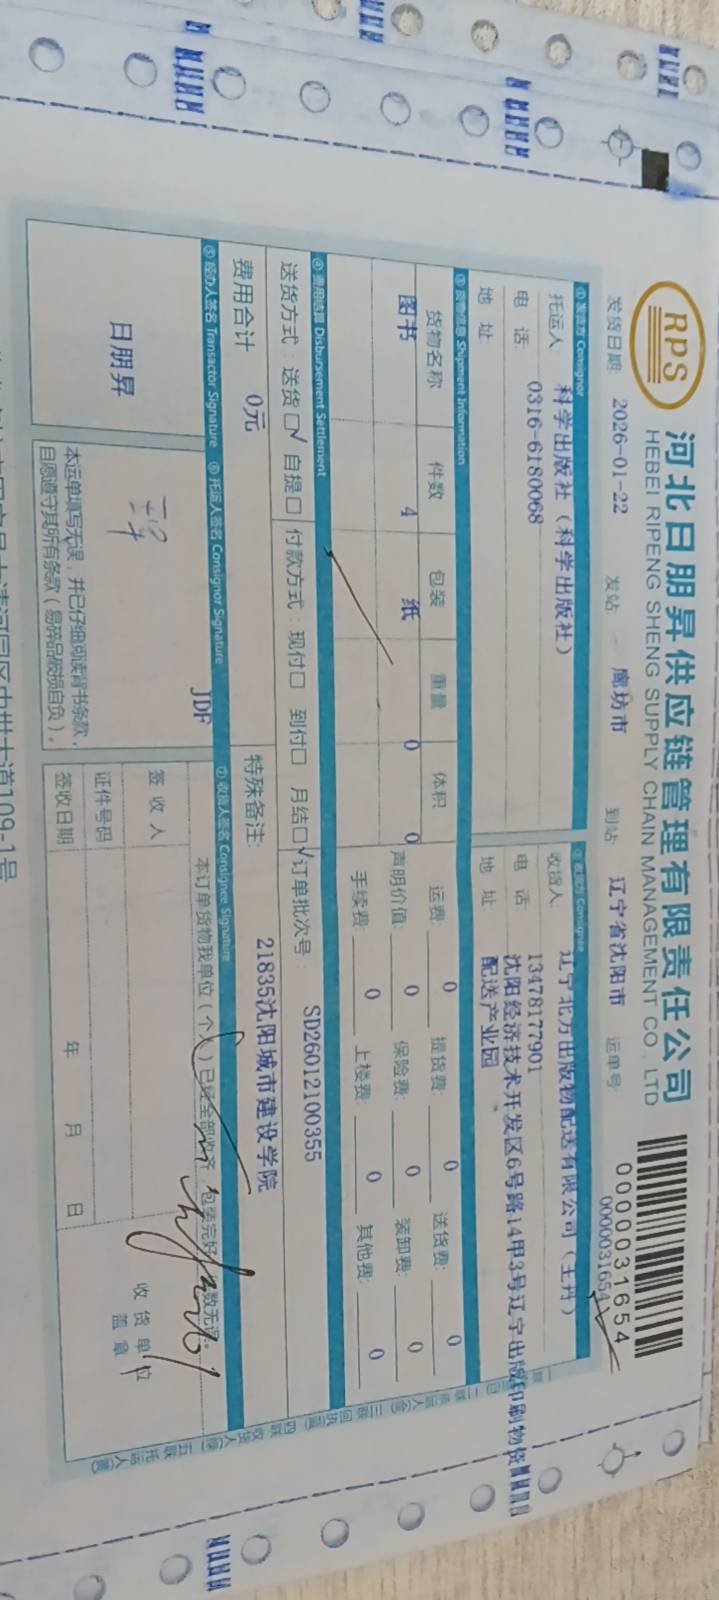 RPS
河北日朋昇供应链管理有限责任公司
HEBEI RIPENG SHENG SUPPLY CHAIN MANAGEMENT CO., LTD
0000031654
0000031654
发货日期: 2026-01-22 发站: 廊坊市 到站: 辽宁省沈阳市 运单号:
① 发货方 Consignor
② 收货方 Consignee
托运人 科学出版社（科学出版社）
收货人: 辽宁北方出版物配送有限公司（王丹）
电 话: 0316-6180068
电 话: 13478177901
地 址
地 址 沈阳经济技术开发区6号路14甲3号辽宁出版印刷物资
配送产业园
③ 货物信息 Shipment Information
货物名称 件数 包装 重量 体积
图书 4 纸 0 0
运费: 0 提货费: 0 送货费: 0
声明价值: 0 保险费: 0 装卸费: 0
手续费: 0 上楼费: 0 其他费: 0
④ 费用结算 Disbursement Settlement
送货方式：送货☑ 自提□ 付款方式：现付□ 到付□ 月结☑ 订单批次号： SD26012100355
费用合计 0元
特殊备注: 21835沈阳城市建设学院
⑤ 经办人签名 Transactor Signature
⑥ 托运人签名 Consignor Signature
⑦ 收货人签名 Consignee Signature
日朋昇
JDF
本运单填写无误，并已仔细阅读背书条款，
自愿遵守其所有条款（易碎品破损自负）。
本订单货物我单位（个人）已经全部收齐，包装完好，数无误。
签 收 人
证件号码
签收日期 年 月 日
收 货 单 位
盖 章
道109-1号